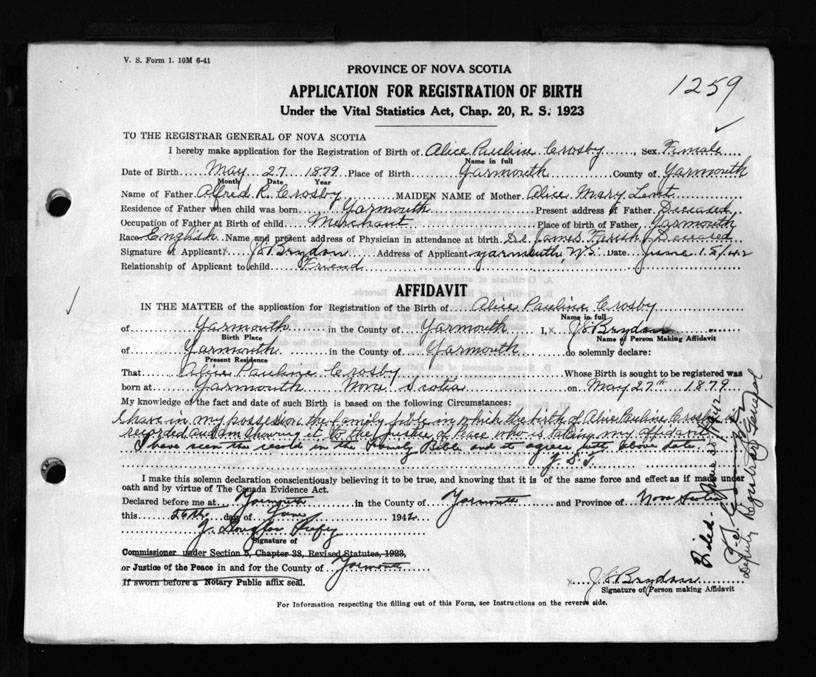 V. S. Form 1. 10M 6-41
1259
PROVINCE OF NOVA SCOTIA
APPLICATION FOR REGISTRATION OF BIRTH
Under the Vital Statistics Act, Chap. 20, R. S. 1923
TO THE REGISTRAR GENERAL OF NOVA SCOTIA
I hereby make application for the Registration of Birth of Alice Pauline Crosby Sex Female
Name in full
Date of Birth May 27 1879 Place of Birth Yarmouth County of Yarmouth
Month Date Year
Name of Father Alfred R. Crosby MAIDEN NAME of Mother Alice Mary
Residence of Father when child was born Yarmouth Present address of Father Deceased
Occupation of Father at Birth of child Merchant Place of birth of Father Yarmouth
Race English Name and present address of Physician in attendance at birth Dr. James Deceased
Signature of Applicant Brydon Address of Applicant Yarmouth, N.S. Date June 42
Relationship of Applicant to child Friend
AFFIDAVIT
IN THE MATTER of the application for Registration of the Birth of Alice Pauline Crosby
Name in full
of Yarmouth in the County of Yarmouth I, x Brydon
Birth Place Name of Person Making Affidavit
of Yarmouth in the County of Yarmouth do solemnly declare:
Present Residence
That Alice Pauline Crosby Whose Birth is sought to be registered was
born at Yarmouth Nova Scotia on May 27th 1879
My knowledge of the fact and date of such Birth is based on the following Circumstances:
I have in my possession the family bible in which the birth of Alice Pauline Crosby is
recorded and am showing it to the Justice of Peace who is taking my affidavit
I have seen the record in the Family Bible and it agrees with above date.
I make this solemn declaration conscientiously believing it to be true, and knowing that it is of the same force and effect as if made under
oath and by virtue of The Canada Evidence Act.
Declared before me at Yarmouth in the County of Yarmouth and Province of Nova Scotia
this 26th day of June 1942
J. Douglas
Signature of
Commissioner under Section 5, Chapter 38, Revised Statutes, 1923,
or Justice of the Peace in and for the County of Yarmouth
If sworn before a Notary Public affix seal.
x Brydon
Signature of Person making Affidavit
For Information respecting the filling out of this Form, see Instructions on the reverse side.
Filed. 1942
Deputy Registrar General